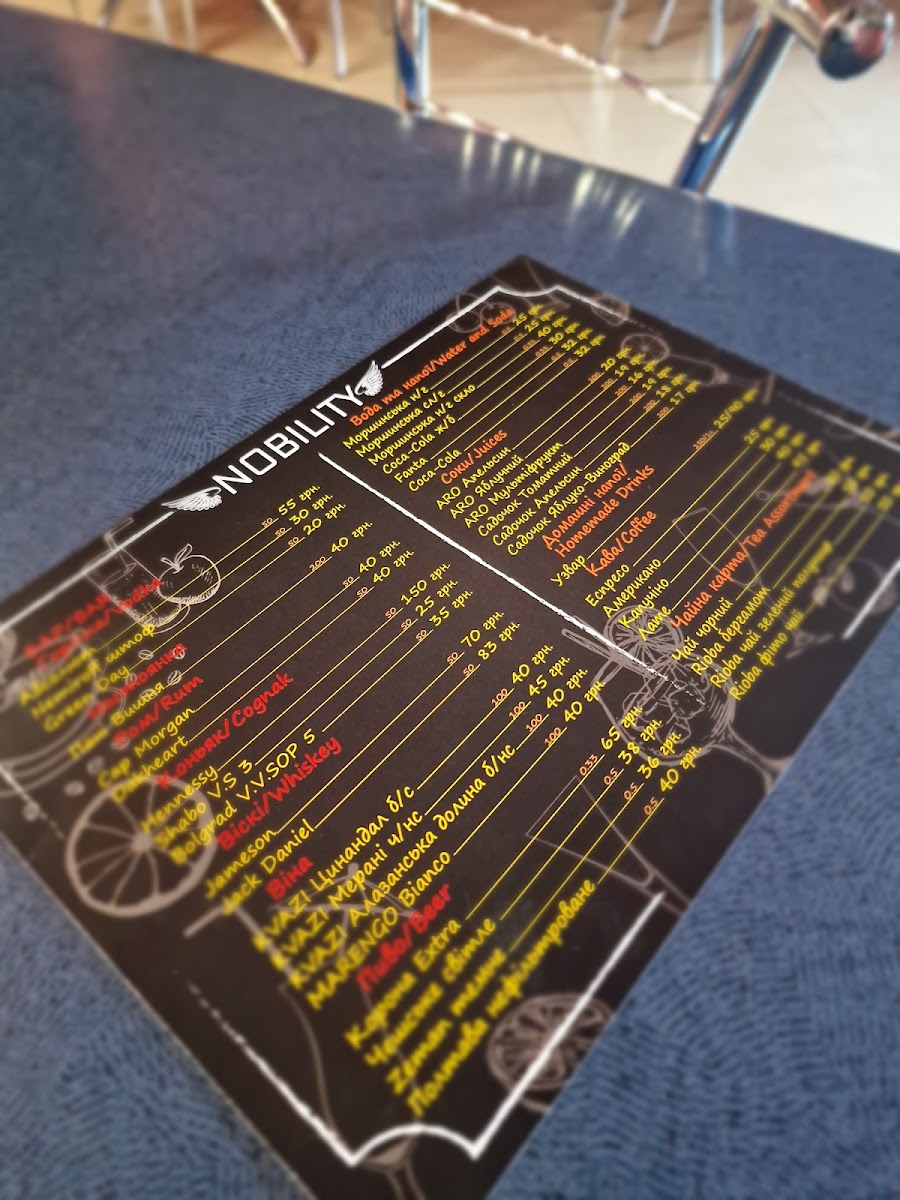 NOBILITY
55 грн.
Nemiroff штоф 50 30 грн.
Green Day 50 20 грн.
Пані Вишня 200 40 грн.
Ром/Rum
Cap Morgan 50 40 грн.
Oakheart 50 40 грн.
Коньяк/Cognak
Hennessy 50 150 грн.
Shabo V.S 3 50 25 грн.
Bolgrad V.V.SOP 5 50 35 грн.
Віскі/Whiskey
Jameson 50 70 грн.
Jack Daniel 50 83 грн.
Віна
KVAZI Цинандал б/с 100 40 грн.
KVAZI Мерані ч/нс 100 45 грн.
KVAZI Алазанська долина б/нс 100 40 грн.
MARENGO Bianco 100 40 грн.
Пиво/Beer
Корона Extra 0.33 65 грн.
Чешське світле 0.5 38 грн.
Zeman темне 0.5 36 грн.
Полтава нефільтроване 0.5 40 грн.
Вода та напої/Water and Soda
Моршинська н/г 0.5 25 грн.
Моршинська сл/г 0.5 25 грн.
Моршинська н/г скло 40 грн.
Coca-Cola ж/б 30 грн.
Fanta 0.5 32 грн.
Coca-Cola 0.5 32 грн.
Соки/Juices
ARO Апельсин 20 грн.
ARO Яблучний 100 16 грн.
ARO Мультіфрукт 100 19 грн.
Садочок Томатний 100 16 грн.
Садочок Апельсин 100 18 грн.
Садочок Яблуко-Виноград 100 17 грн.
Домашні напої/
Homemade Drinks
Узвар 25/90 грн.
Кава/Coffee
Еспресо
Американо
Капучіно
Лате
Чайна карта/Tea Assortment
Чай чорний
Rioba бергамот
Rioba чай зелений
Rioba фіто чай